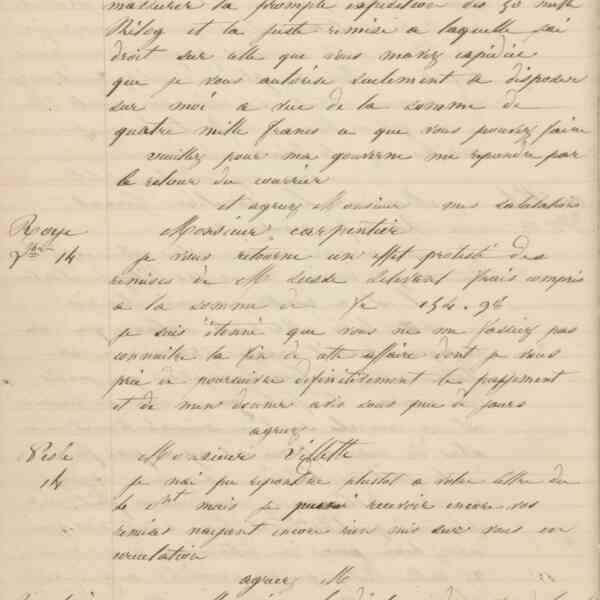 massurer la prompte expedition des 50 mille
Kilog et la juste remise a laquelle jai
droit sur celle que vous mavez expediée
que je vous autorise seulement a disposer
sur moi a vue de la somme de
quatre mille francs a que vous pouvez faire
veuillez pour ma gouverne me repondre par
le retour du courrier
et agreez Monsieur mes salutations
Roye Monsieur Carpentier
14 je vous retourne un effet protesté des
remises de M frais compris
a la somme de fr 154.98
je suis étonné que vous ne me fassiez pas
connaitre la fin de cette affaire dont je vous
prie de poursuivre definitivement le payement
et de men donner avis sous peu de jours
agreez
Monsieur Villette
14 je nai pu repondre plustot a votre lettre du
mais je recevoir encore vos
remises nayant encore rien mis sur vous en
circulation
agreez M